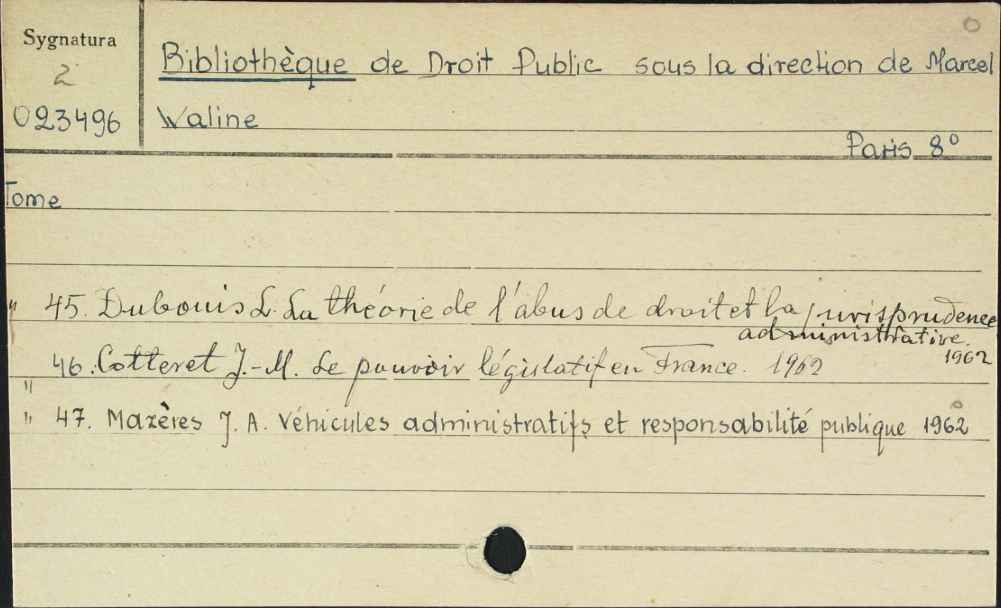 Sygnatura
2
023496
Bibliothèque de Droit Public sous la direction de Marcel
Waline
Paris 8°
Tome
" 45. Dubouis L. La théorie de l'abus de droit et la jurisprudence
administrative.
1962
" 46. Cotteret J.-M. Le pouvoir législatif en France. 1962
" 47. Mazères J. A. Véhicules administratifs et responsabilité publique 1962